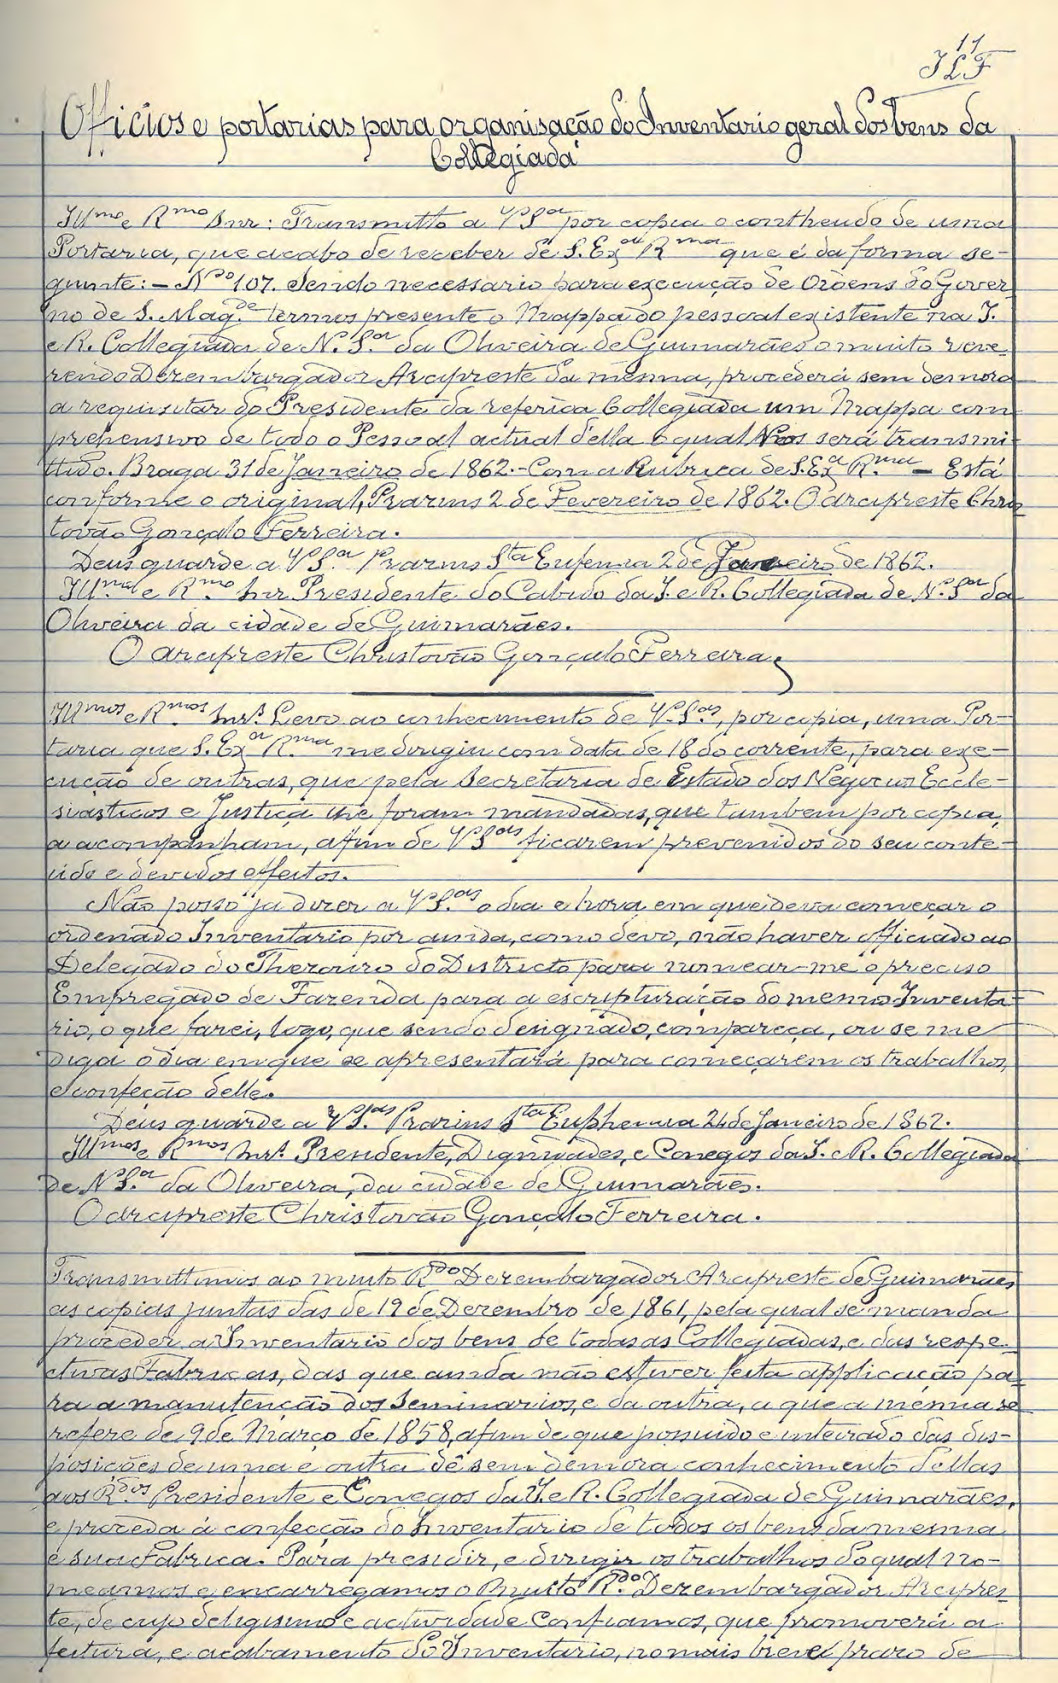 11
JLF
Officios e portarias para organisação do Inventario geral dos bens da
Collegiada
Ill.mo e R.mo Snr: Transmitto a V.S.a por copia o contheudo de uma
Portaria, que acabo de receber de S. Ex.a R.ma que é da forma se-
guinte: – N.o 107. Sendo necessario para execução de Ordens do Gover
no de S. Mag.de termos presente o Mappa do pessoal existente na I.
e R. Collegiada de N. S.ra da Oliveira de Guimarães o muito reve-
rendo Dezembargador Arcipreste da mesma, procederá sem demora
a requisitar do Presidente da referica Collegiada um Mappa com
prehensivo de todo o Pessoal actual d'ella o qual Nos será transmi
ttido. Braga 31 de Janeiro de 1862. – Com a Rubrica de S. Ex.a R.ma – Está
conforme o original, Prazins 2 de Fevereiro de 1862. O arcipreste Chris
tovão Gonçalo Ferreira.
Deus guarde a V.S.a Prazins S.ta Eufemia 2 de Janeiro de 1862.
Ill.mo e R.mo Snr Presidente do Cabido da I. e R. Collegiada de N. S.ra da
Oliveira da cidade de Guimarães.
O arcipreste Christovão Gonçalo Ferreira
Ill.mos e R.mos Snr.s Levo ao conhecimento de V.S.as, por copia, uma Por-
taria que S. Ex.a R.ma me dirigiu com data de 18 do corrente, para exe-
cução de outras, que pela Secretaria de Estado dos Negocios Eccle-
siasticos e Justiça lhe foram mandadas, que tambem por copia,
a acompanham, afim de V.S.as ficarem prevenidos do seu conte-
údo e devidos effeitos.
Não posso já dizer a V.S.as o dia e hora, em que deva começar o
ordenado Inventario por ainda, como devo, não haver officiado ao
Delegado do Thezoiro do Districto para nomear-me o preciso
Empregado de Fazenda para a escripturação do mesmo Inventa-
rio, o que farei, logo, que sendo designado, compareça, ou se me
diga o dia em que se apresentará para começarem os trabalhos,
e confeção delle.
Deus guarde a V.S.as Prazins S.ta Euphemia 24 de Janeiro de 1862.
Ill.mos e R.mos Snr.s Presidente, Dignidades, e Conegos da I. e R. Collegiada
de N. S.ra da Oliveira, da cidade de Guimarães.
O arcipreste Christovão Gonçalo Ferreira.
Transmittimos ao muito R.do Dezembargador Arcipreste de Guimarães
as copias juntas das de 19 de Dezembro de 1861, pela qual se manda
proceder a Inventario dos bens de todas as Collegiadas, e das respe-
ctivas Fabricas, das que ainda não estiver feita applicação pa-
ra a manutenção dos Seminarios, e da outra, a que a mesma se
refere de 9 de Março de 1858, afim de que possuido e inteirado das dis-
posições de uma e outra dê sem demora conhecimento dellas
aos R.dos Presidente e Conegos da I. e R. Collegiada de Guimarães,
e proceda á confecção do Inventario de todos os bens da mesma
e sua Fabrica. Para presidir, e dirigir os trabalhos do qual no-
meamos e encarregamos o Muito R.do Dezembargador Arcipres-
te, de cujo deligismo e actividade confiamos, que promoverá a
feitura, e acabamento do Inventario, no mais breve prazo de